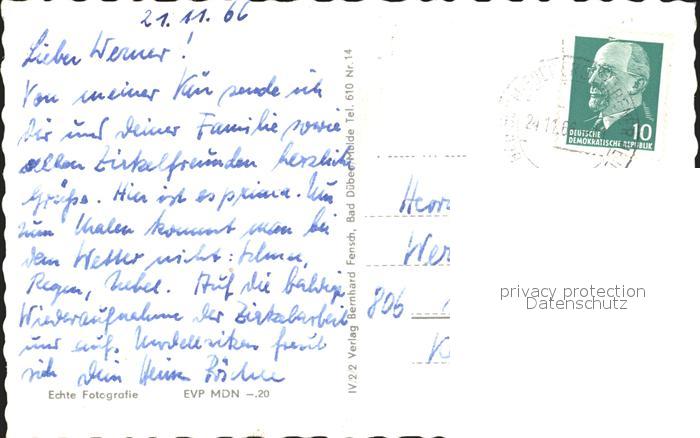 21.11.66
Lieber Werner!
Von meiner Kur sende ich
Dir und Deiner Familie sowie
allen Zirkelfreunden herzliche
Grüße. Hier ist es prima. Nur
zum Malen kommt man bei
dem Wetter nicht: Schnee,
Regen, Nebel. Auf die baldige
Wiederaufnahme der Zirkelarbeit
und aufs Modellzirken freut
sich Dein Heinz
Echte Fotografie EVP MDN –.20
IV 2/2 Verlag Bernhard Fensch, Bad Düben/Mulde Tel. 610 Nr. 14
24.11.6
10
DEUTSCHE
DEMOKRATISCHE REPUBLIK
Herrn
Wer
806
privacy protection
Datenschutz